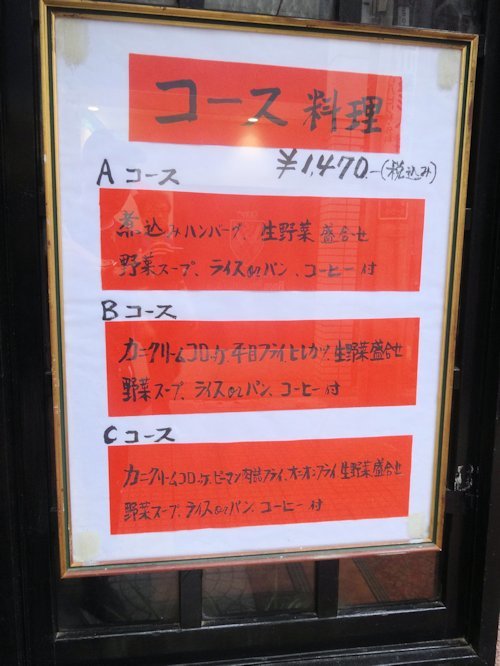 コース料理
¥1,470.-(税込み)
Aコース
煮込みハンバーグ、生野菜盛合せ
野菜スープ、ライスorパン、コーヒー付
Bコース
カニクリームコロッケ、平目フライ、ヒレカツ、生野菜盛合せ
野菜スープ、ライスorパン、コーヒー付
Cコース
カニクリームコロッケ、ピーマン肉詰フライ、オニオンフライ、生野菜盛合せ
野菜スープ、ライスorパン、コーヒー付